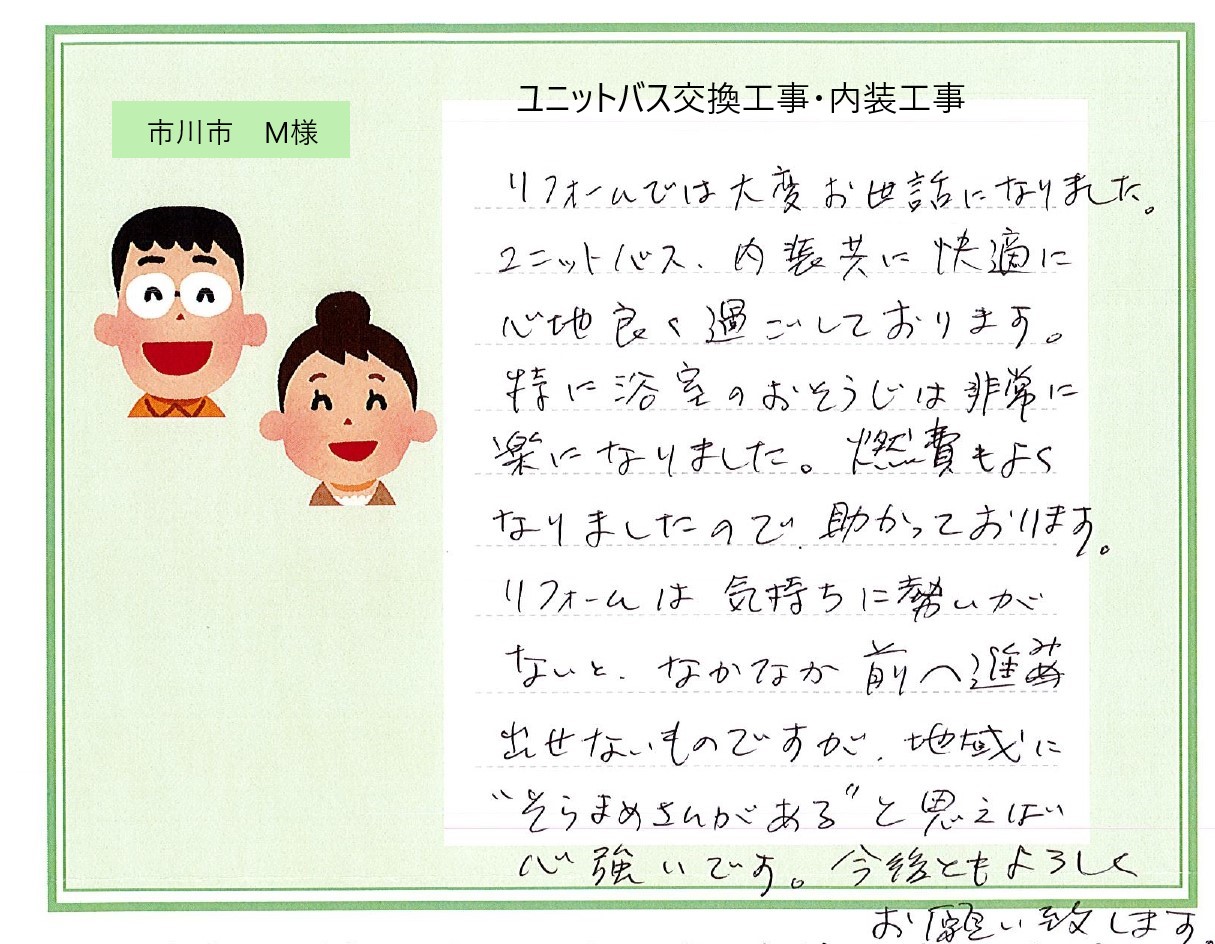 ユニットバス交換工事・内装工事
市川市　M様
リフォームでは大変お世話になりました。
ユニットバス、内装共に快適に
心地良く過ごしております。
特に浴室のおそうじは非常に
楽になりました。燃費もよく
なりましたので、助かっております。
リフォームは気持ちに勢いが
ないと、なかなか前へ進み
出せないものですが、地域に
“そらまめさんがある”と思えばい
心強いです。今後ともよろしく
お願い致します。